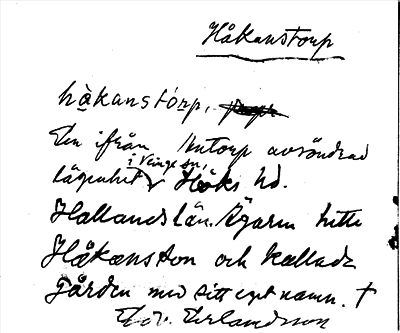 Håkanstorp
håkanstorp,
En ifrån Untorp avsöndrad
i Veinge sn,
lägenhet Höks hd.
Hallands län. Ägaren hette
Håkansson och kallade
gården med sitt eget namn. †
Edv. Erlandsson